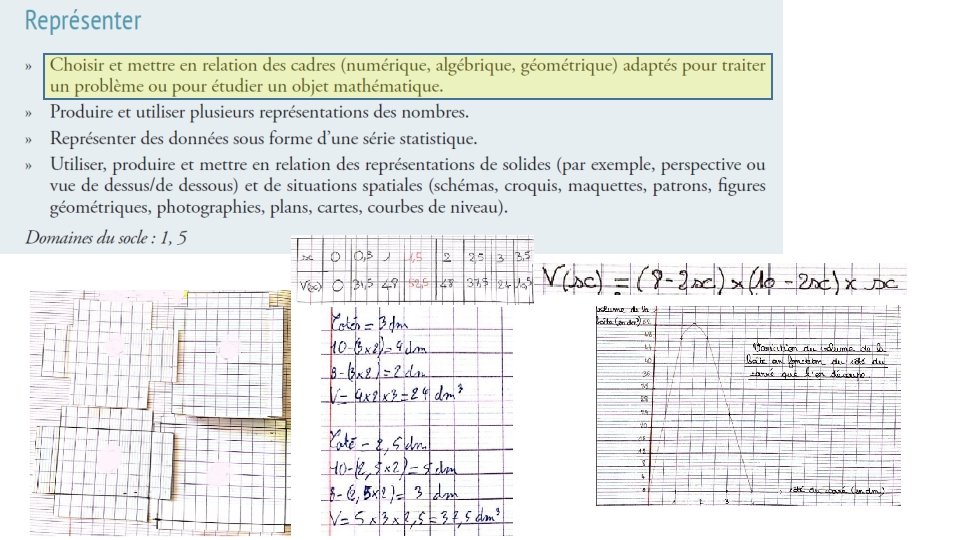 Représenter
» Choisir et mettre en relation des cadres (numérique, algébrique, géométrique) adaptés pour traiter
un problème ou pour étudier un objet mathématique.
» Produire et utiliser plusieurs représentations des nombres.
» Représenter des données sous forme d’une série statistique.
» Utiliser, produire et mettre en relation des représentations de solides (par exemple, perspective ou
vue de dessus/de dessous) et de situations spatiales (schémas, croquis, maquettes, patrons, figures
géométriques, photographies, plans, cartes, courbes de niveau).
Domaines du socle : 1, 5
x 0 0,5 1 1,5 2 2,5 3 3,5
V(x) 0 31,5 48 52,5 48 37,5 24
V(x) = (8-2x)×(10-2x)× x
= 3 dm
10-(3×2)=4 dm
8-(3×2)=2 dm
V=4×2×3=24 dm³
= 2,5 dm
10-(2,5×2)=5 dm
8-(2,5×2)= 3 dm
V=5×3×2,5=37,5 dm³
volume de la
boîte (en dm³)
Variation du volume de la
boîte en fonction du côté du
carré que l'on découpe
côté du carré (en dm)